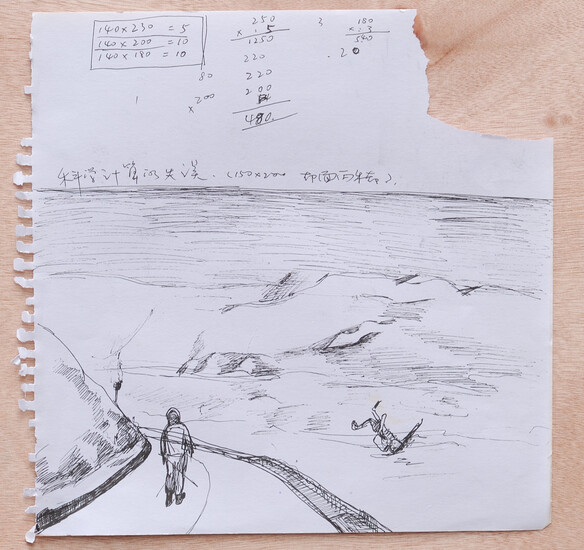 140×230 = 5
140×200 = 10
140×180 = 10
250
×.5
1250
220
220
200
480.
80
×200
1
3
180
×.3
540
.20
科学计算的失误.(150×200 布面丙烯).